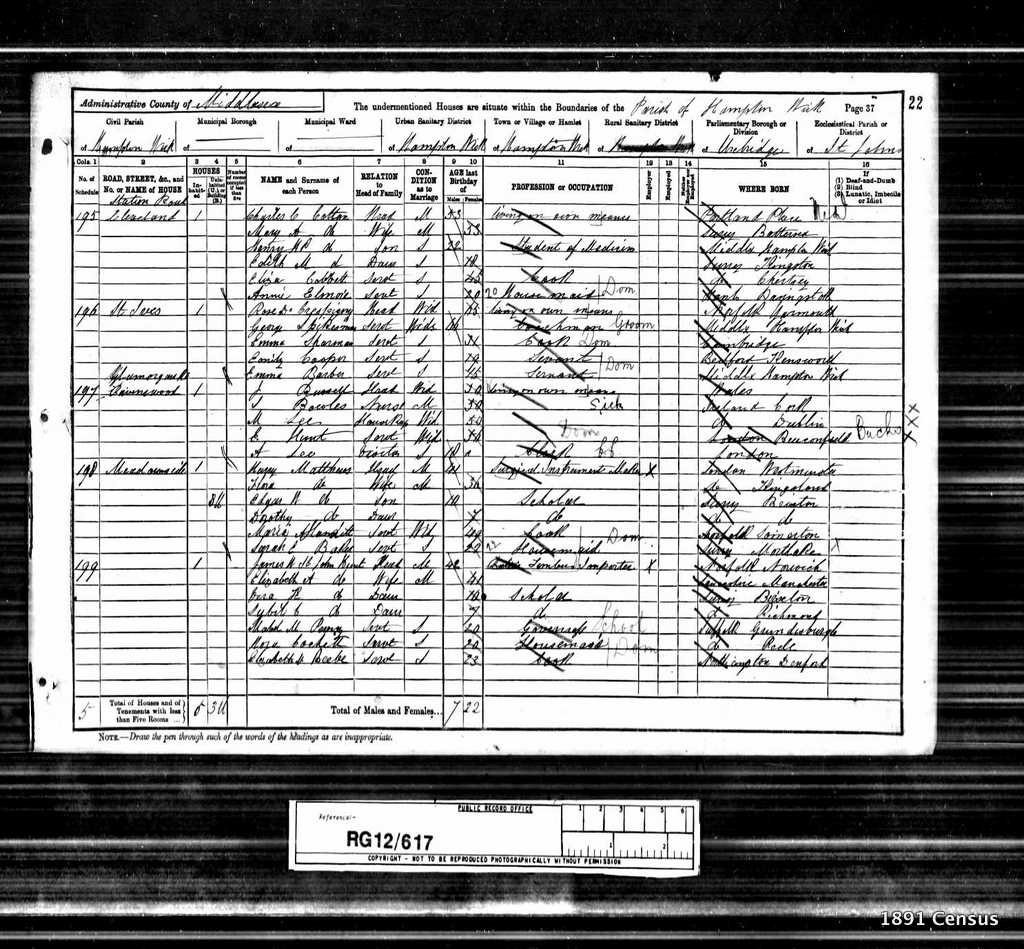 Administrative County of Middlesex
The undermentioned Houses are situate within the Boundaries of the Parish of Hampton Wick
Page 37
22
Civil Parish
Municipal Borough
Municipal Ward
Urban Sanitary District
Town or Village or Hamlet
Rural Sanitary District
Parliamentary Borough or Division
Ecclesiastical Parish or District
of Hampton Wick
of
of
of Hampton Wick
of Hampton Wick
of
of Uxbridge
of St Johns
Cols. 1 2 3 4 5 6 7 8 9 10 11 12 13 14 15 16
No. of Schedule
ROAD, STREET, &c., and No. or NAME of HOUSE
HOUSES
Inhabited
Uninhabited (U.), or Building (B.)
Number of rooms occupied if less than five
NAME and Surname of each Person
RELATION to Head of Family
CONDITION as to Marriage
AGE last Birthday of
Males
Females
PROFESSION or OCCUPATION
Employer
Employed
Neither Employer nor Employed
WHERE BORN
If
(1) Deaf-and-Dumb
(2) Blind
(3) Lunatic, Imbecile or Idiot
Station Road
195 Cleveland 1 Charles C. Cotton Head M 53 living on own means Portland Place
Mary A do Wife M 53 Surrey Battersea
Henry do Son S 22 Student of Medicine Middlx Hampton Wick
Edith M do Daur S 18 Surrey Kingston
Eliza Cobbett Servt S 45 Cook do Chertsey
Annie Elmore Servt S 20 Housemaid Dom Hants Basingstoke
196 St Ives 1 Rose De Crespigny Head Wid living on own means Norfolk Yarmouth
George Servt Widr Coachman Groom Middlx Hampton Wick
Emma Sharman Servt S Cook Dom Cambridge
Emily Cooper Servt S 19 Servant Dom Bedford Kensworth
Emma Barber Servt S Servant Middlx Hampton Wick
197 1 J Russell Head Wid living on own means Wales
S Bowles Nurse M 50 Sick Ireland Cork
M Lee Wid 50 do Dublin
E Hunt Servt Wid Dom London Beaconsfield Bucks
A Lee Visitor S 18 Clerk London
198 1 Harry Matthews Head M 41 Surgical Instrument Maker X London Westminster
Flora do Wife M do Kingsland
3U Edgar W do Son 10 Scholar Surrey Brixton
Dorothy do Daur 7 do do do
Maria Servt Wid 49 Cook Dom Norfolk Somerton
Sarah E Baker Servt S 22 Housemaid Surrey Mortlake
199 1 James W St John Head M 42 Timber Importer X Norfolk Norwich
Elizabeth A do Wife M 41 Lancashire Manchester
do Daur 10 Scholar Surrey Brixton
Sybil C do Daur 7 do do Richmond
Penny Servt S 20 Governess School Suffolk Grundisburgh
Rosa Cockett Servt S 20 Housemaid Dom do Rede
Elizabeth Beebe Servt S 23 Cook Northampton Denford
5 Total of Houses and of Tenements with less than Five Rooms ... 5 3U
Total of Males and Females... 7 22
NOTE.—Draw the pen through such of the words of the headings as are inappropriate.
PUBLIC RECORD OFFICE
Reference:-
RG12/617
1 2 3 4 5 6
1 2
COPYRIGHT - NOT TO BE REPRODUCED PHOTOGRAPHICALLY WITHOUT PERMISSION
1891 Census